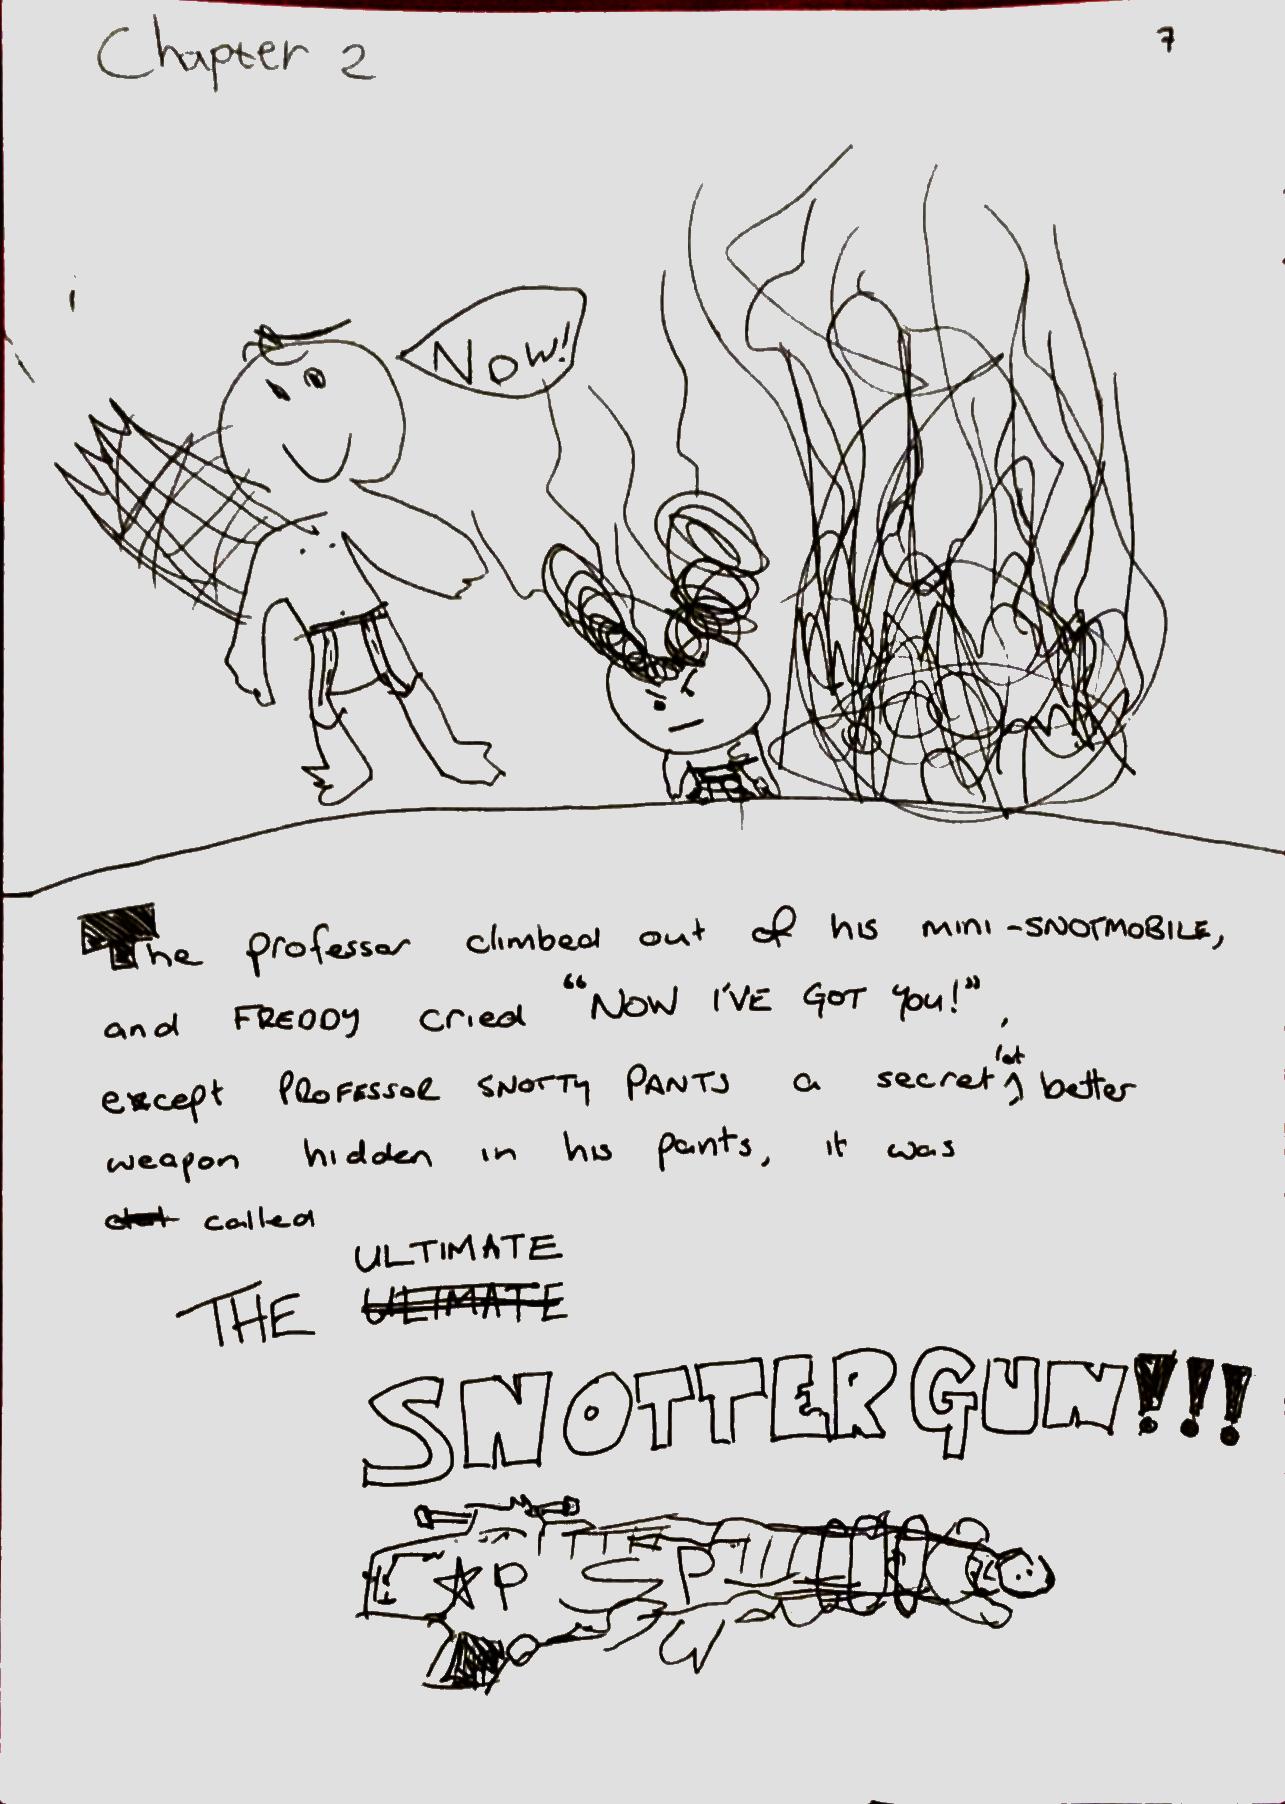 Chapter 2
7
Now!
The professor climbed out of his mini-SNOTMOBILE,
and FREDDY cried "NOW I'VE GOT YOU!",
except PROFESSOR SNOTTY PANTS a secret lot better
weapon hidden in his pants, it was
called
ULTIMATE
THE ULIMATE
SNOTTER GUN!!!
P S P